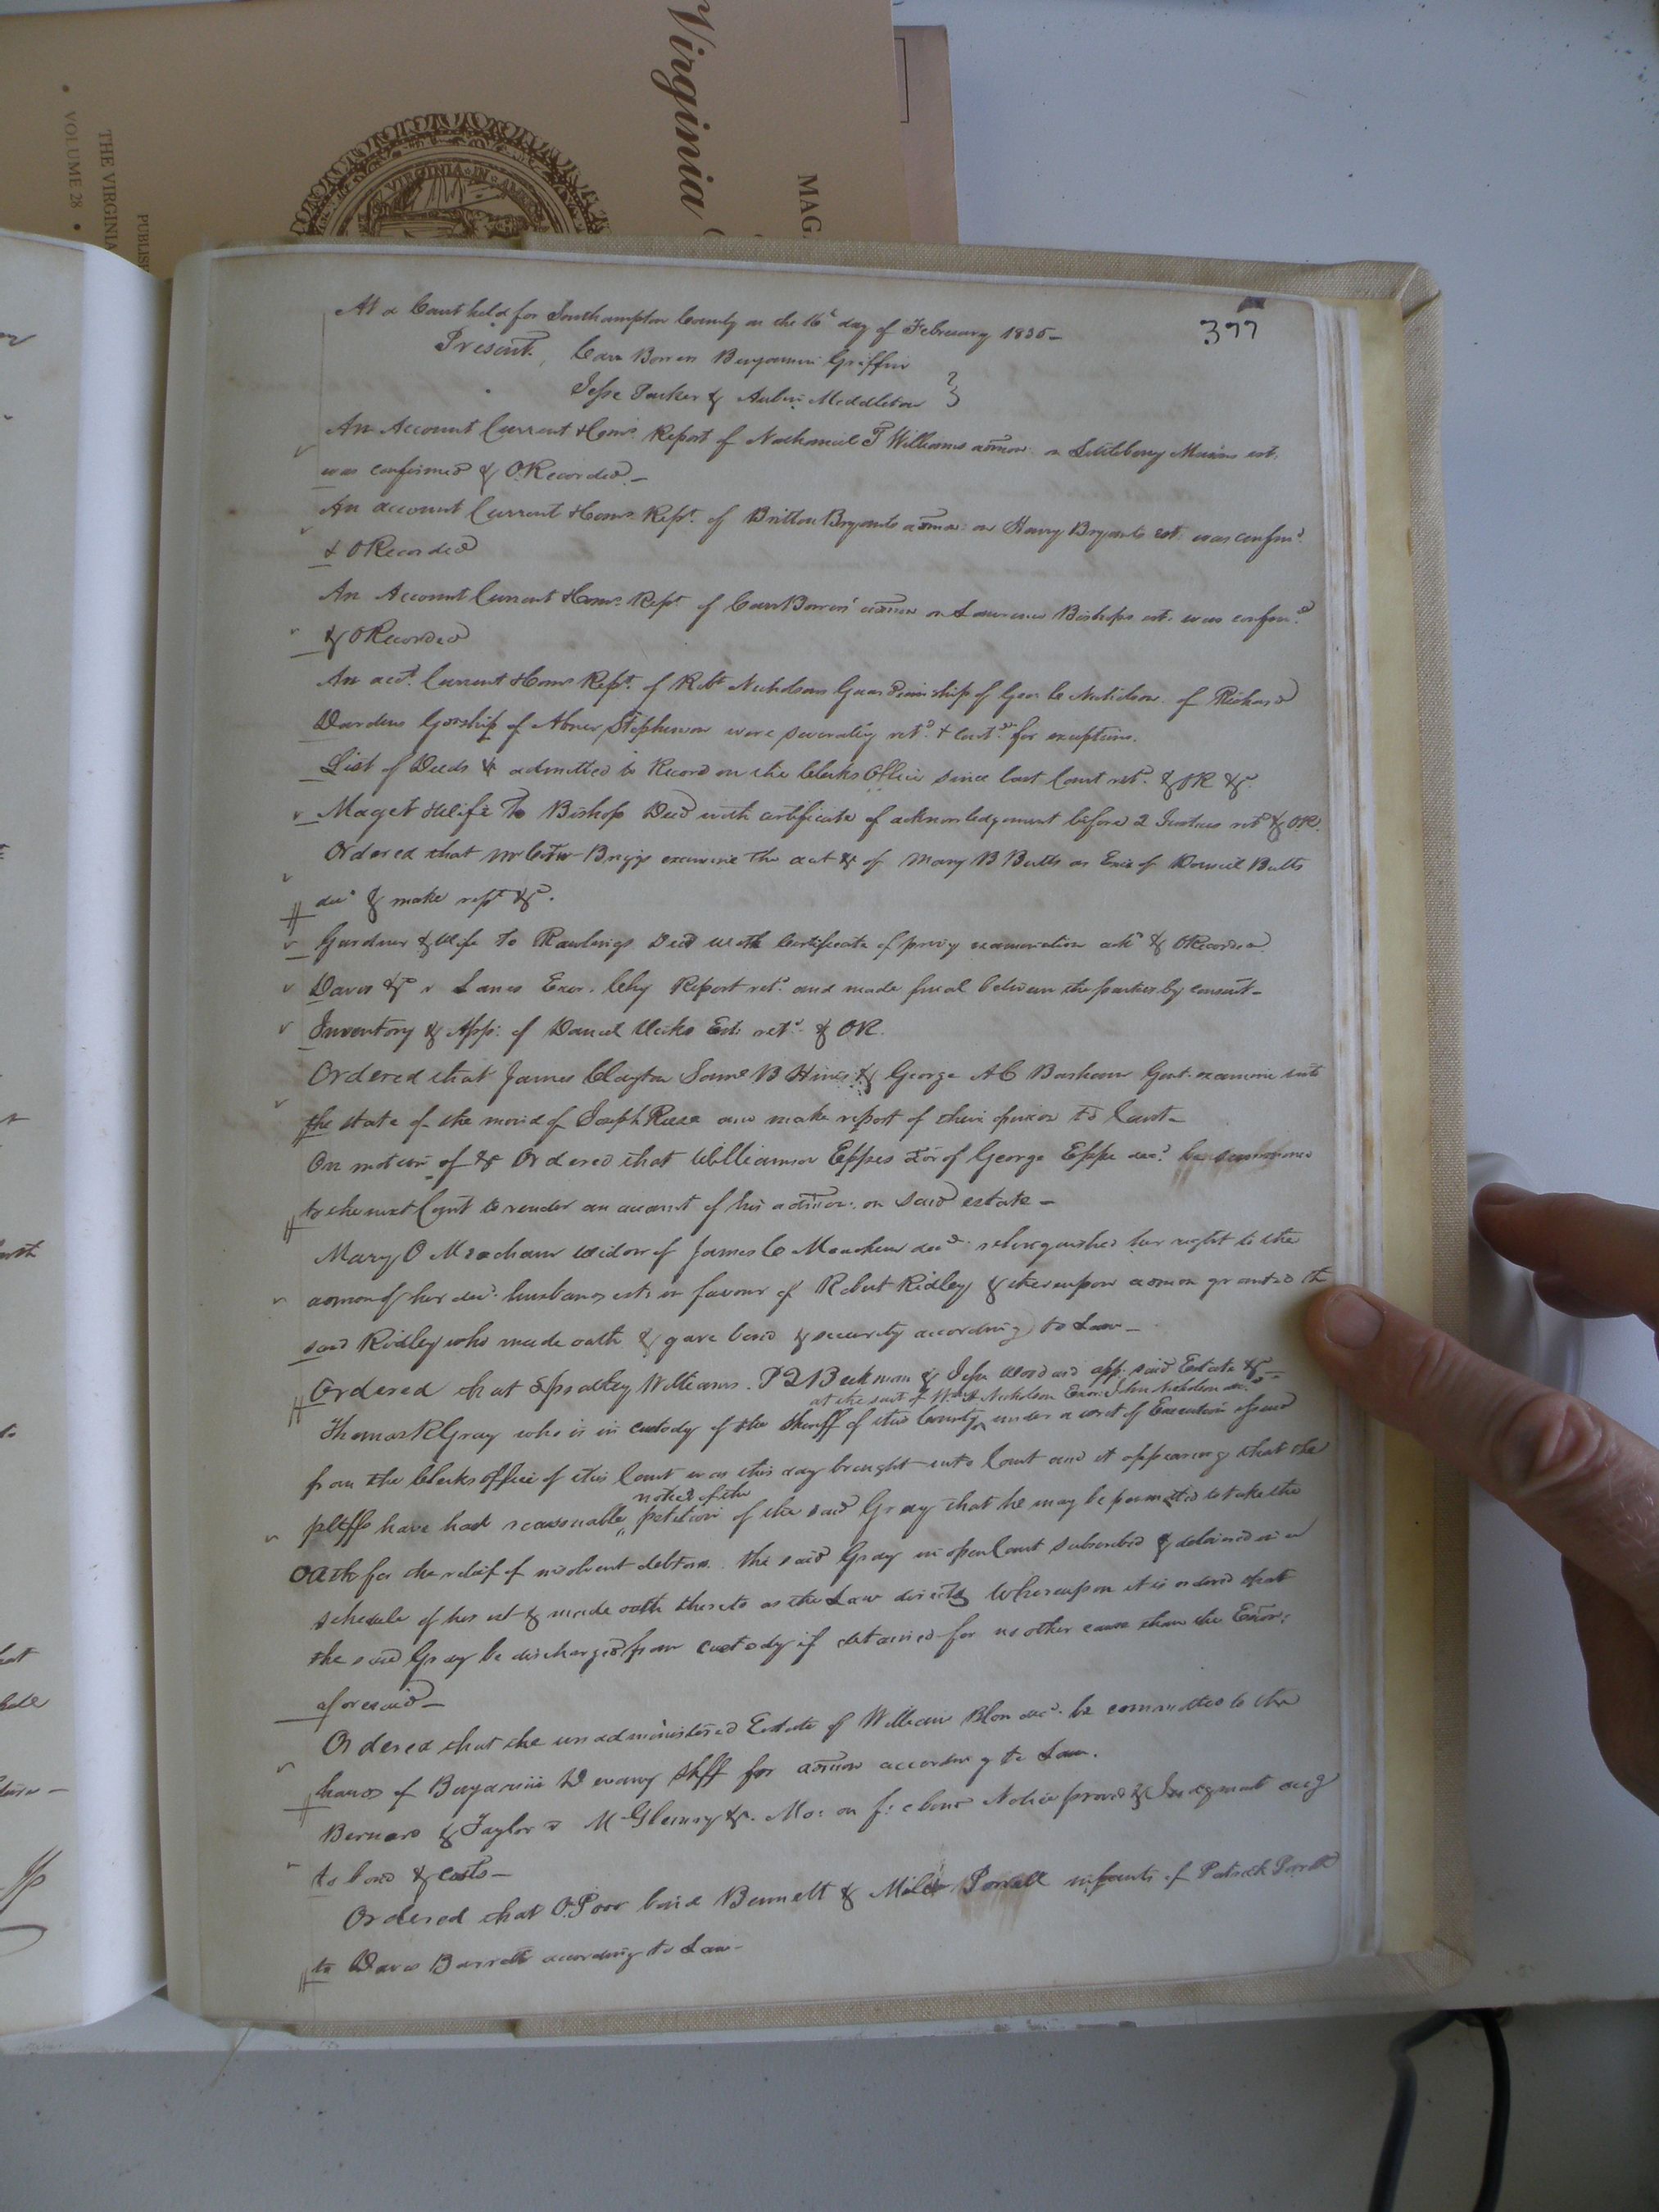 Virginia
MAG
VIRGINIA IN
PUBLISH
THE VIRGINIA
VOLUME 28
377
At a Court held for Southampton County on the 16th day of February 1835—
Present. Carr Bowers Benjamin Griffin
Jesse Parker & Aubin Middleton
An Account Current & Coms Report of Nathaniel T Williams admon on Littleberry Masons est.
was confirmed & O.Recorded.—
An account Current & Coms Rept. of Britton Bryants admon: on Harry Bryants est. was confmd.
& ORecorded
An Account Current & Coms Rept of Carr Bowers' admon on Lawrence Bishops est. was confmd.
& ORecorded
An acct. Current & Coms Rept. of Robt Nicholsons Guardianship of Geo C Nicholson of Richard
Dardens Gdnship of Abner Stephenson were severally retd. & contd. for exceptions.
List of Deeds & admitted to Record in the Clerks Office since last Court retd. & OR &c.
Maget & Wife To Bishop Deed with certificate of acknowledgement before 2 Justices retd & OR.
Ordered that Briggs examine the acct & of Mary B Butts as Exix of Daniel Butts
decd & make rept &c.
Gardner & Wife To Rawlings Deed with Certificate of privy examination ackd & ORecorded
Davis &c v Lanes Exor. Chy Report retd. and made final between the parties by consent—
Inventory & App: of Daniel Vicks Est. retd. & OR.
Ordered that James Clayton Saml B Hines & George A C Barham Gent. examine into
the state of the mind of Joseph Reese and make report of their opinion to Court—
On motion of & Ordered that Williamson Eppes Exor of George Eppes decd. be summoned
to the next Court to render an account of his admon: on said estate—
Mary O Meacham widow of James C Meacham decd. relinquished her right to the
admon of her decd. husbands est. in favour of Robert Ridley & thereupon admon granted the
said Ridley who made oath & gave bond & security according to Law—
Ordered that Spratley Williams. P Q Beckman & Jesse Woodard app: said Estate &c—
at the suit of Wm Nicholson Exor: John Nicholson dec.
Thomas R Gray who is in custody of the Sheriff of this County under a writ of Execution issued
from the Clerks office of this Court was this day brought into Court and it appearing that the
notice of the
pltffs have had reasonable petition of the said Gray that he may be permitted to take the
oath for the relief of insolvent debtors. the said Gray in open Court subscribed & delivered in a
schedule of his est & made oath thereto as the Law directs Whereupon it is ordered that
the said Gray be discharged from custody if detained for no other cause than the Exon:
aforesaid—
Ordered that the unadministered Estate of William Blow decd. be committed to the
hands of Benjamin Devany Shff for admon according to Law.
Bernard & Taylor v McGlemry &c. Mo: on f: c bond Notice proved & Judgment accg
to bond & costs—
Ordered that O.Poor bind Bennett & Porrell infants of Patrick
to Davis Barrett according to Law—